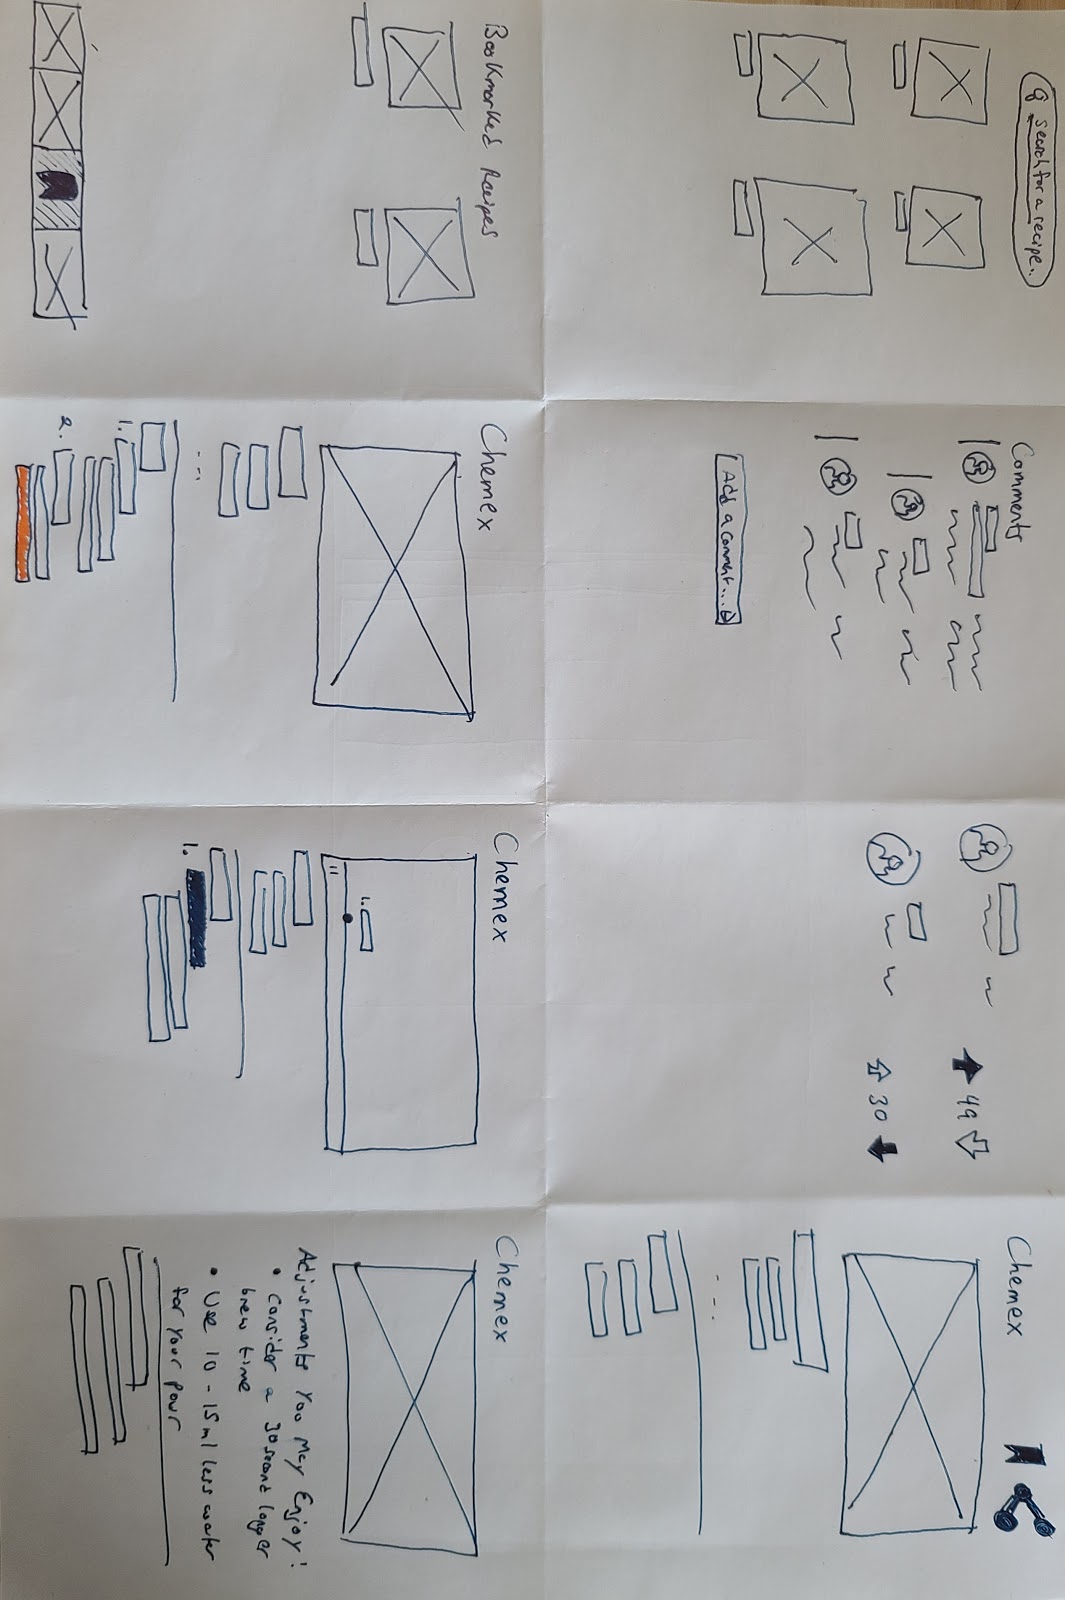 search for a recipe..
Comments
Add a comment...
49
30
Chemex
Bookmarked Recipes
Chemex
1.
2.
Chemex
1.
1.
Chemex
Adjustments You May Enjoy!
• Consider a 30 second longer
brew time
• Use 10 - 15ml less water
for your pour